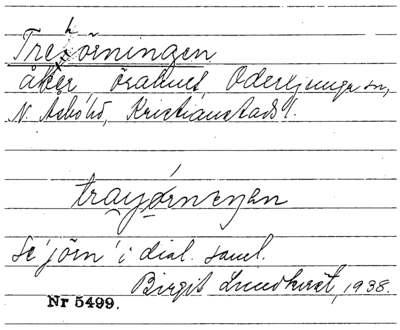 Trehörningen
åker, Örahuset, Oderljunga sn,
N. Åsbo hd, Kristianstads l.
Se 'jörn' i dial. saml.
Birgit Lundkvist, 1938.
Nr 5499.